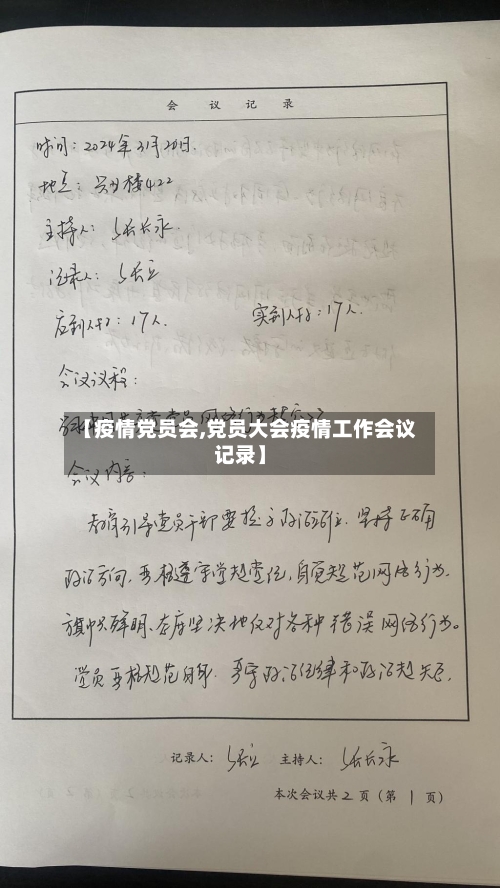 会 议 记 录
时间：2024年3月20日.
地点：422
主持人：张长永.
记录人：张立
应到人数：17人. 实到人数：17人.
会议议程：
【疫情党员会,党员大会疫情工作会议
记录】
会议内容：
引导党员干部要 政治 坚持正确
政治方向，严格遵守党规党纪，自觉规范网络行为.
旗帜鲜明、坚决地反对各种错误网络行为。
党员严格规范自身. 严守政治纪律和政治规矩.
记录人：张立 主持人：张长永
本次会议共 2 页（第 1 页）